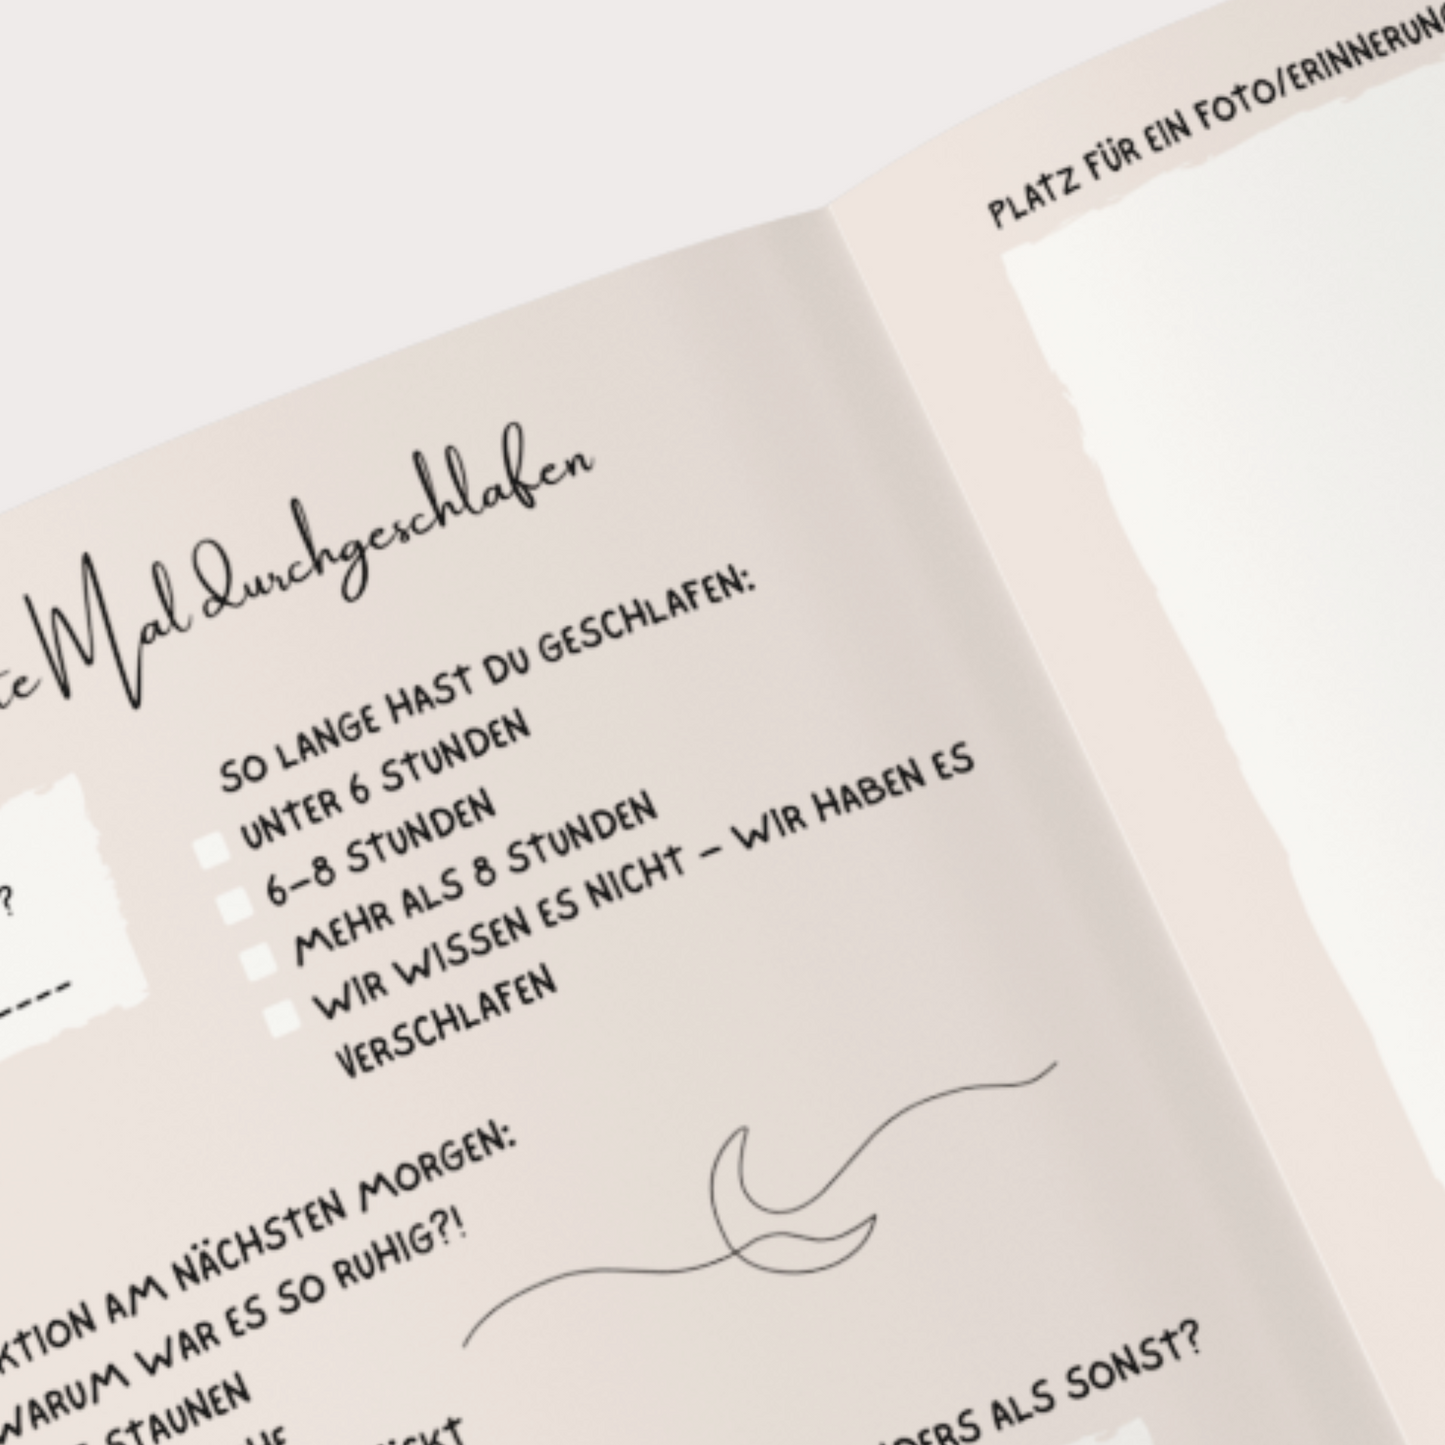 Mal durchgeschlafen
?
SO LANGE HAST DU GESCHLAFEN:
UNTER 6 STUNDEN
6–8 STUNDEN
MEHR ALS 8 STUNDEN
WIR WISSEN ES NICHT – WIR HABEN ES
VERSCHLAFEN
AM NÄCHSTEN MORGEN:
WARUM WAR ES SO RUHIG?!
STAUNEN
ALS SONST?
PLATZ FÜR EIN FOTO/ERINNERUNG